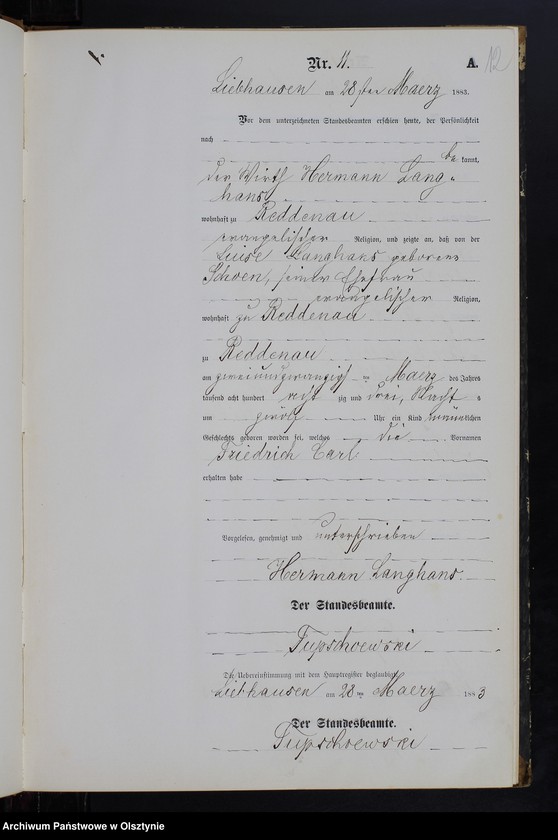 Nr. 11. A. 12
Liebhausen am 28sten Maerz 1883.
Vor dem unterzeichneten Standesbeamten erschien heute, der Persönlichkeit
nach
be kannt,
der Wirth Hermann Lang-
hans
wohnhaft zu Reddenau
evangelischer Religion, und zeigte an, daß von der
Luise Langhans geborene
Schoen, seiner Ehefrau
evangelischer Religion,
wohnhaft zu Reddenau
zu Reddenau
am zweiundzwanzigsten Maerz des Jahres
tausend acht hundert achtzig und drei, Nachts
um zwölf Uhr ein Kind männlichen
Geschlechts geboren worden sei, welches die Vornamen
Friedrich Carl
erhalten habe
Vorgelesen, genehmigt und unterschrieben
Hermann Langhans
Der Standesbeamte.
Tupschoewski
Die Uebereinstimmung mit dem Hauptregister beglaubigt
Liebhausen am 28ten Maerz 1883
Der Standesbeamte.
Tupschoewski
Archiwum Państwowe w Olsztynie